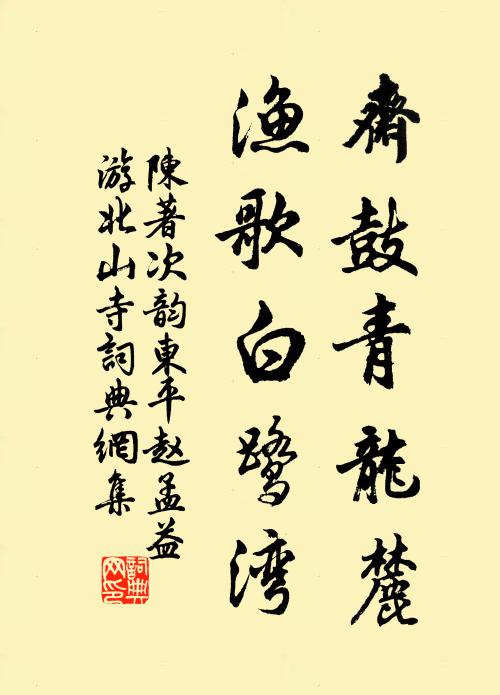 齋鼓青龍麓
渔歌白鹭湾
陳著次韵東平赵孟益
游北山寺詞典網集
詞典网印